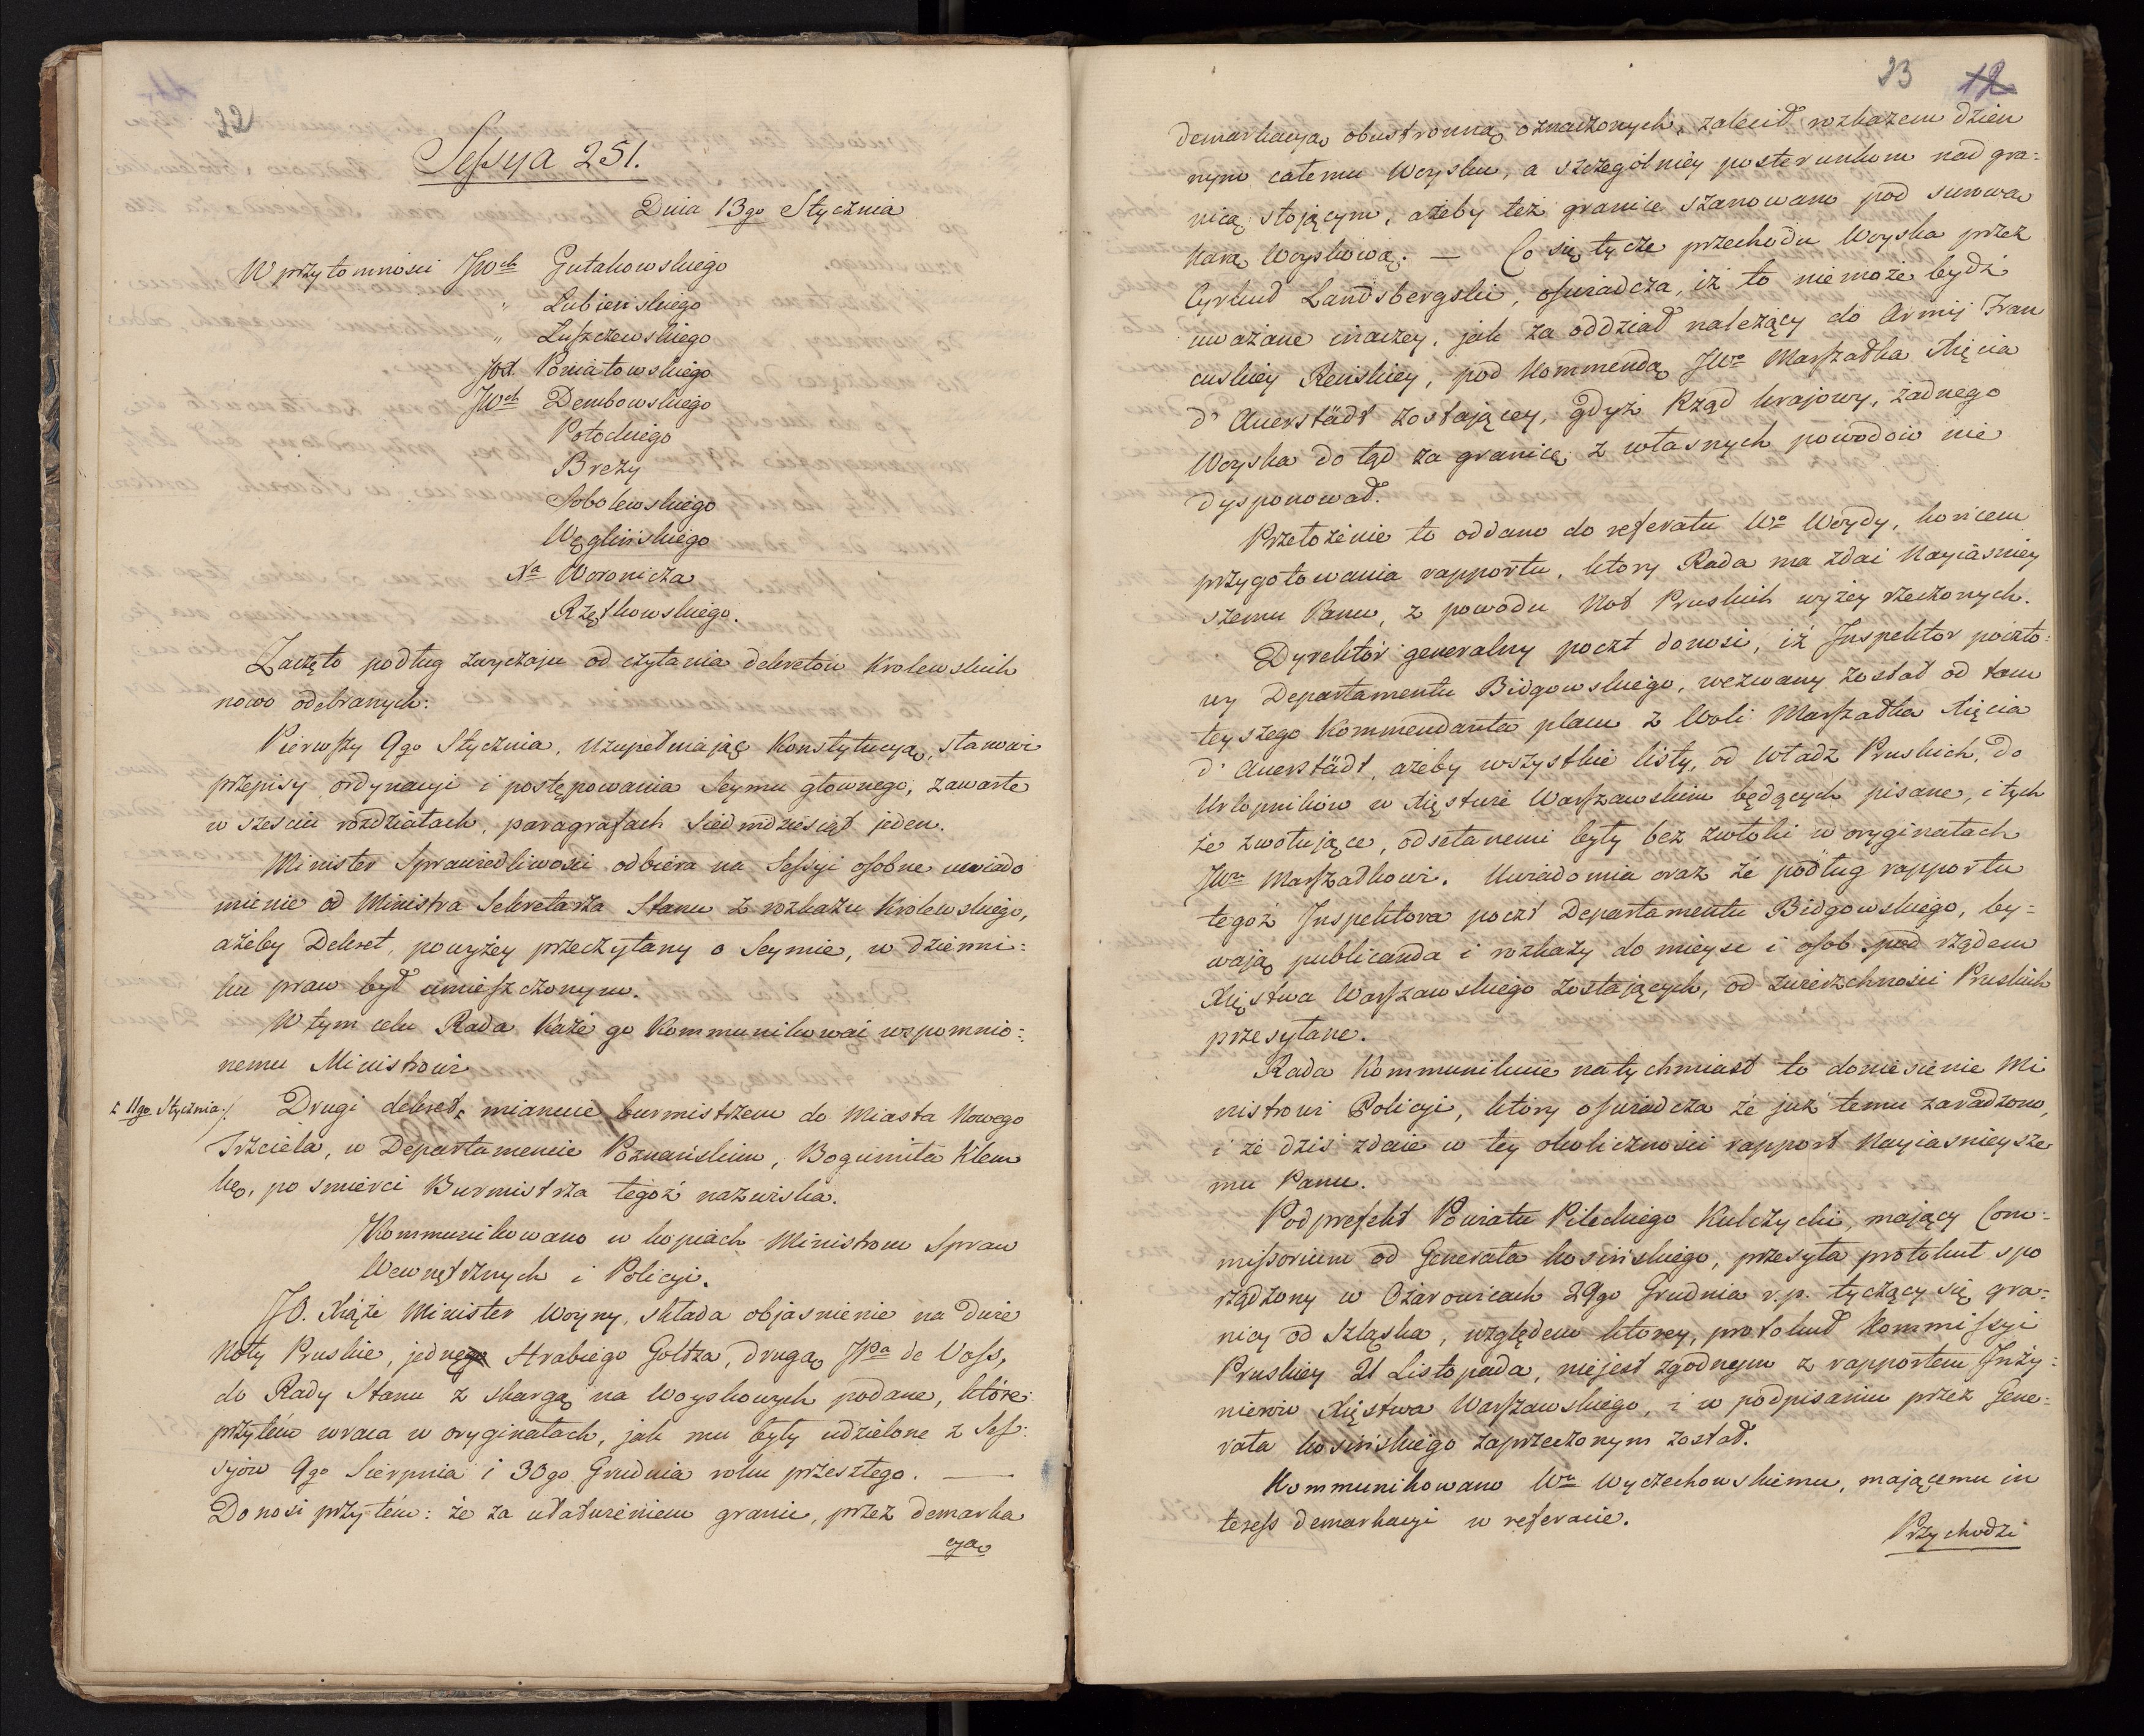 22
Sessya 251.
Dnia 13go Stycznia
W przytomności JWch Gutakowskiego
" Lubienskiego
" Luszczewskiego
JOX. Poniatowskiego
JWch Dembowskiego
Potockiego
Brezy
Sobolewskiego
Węglińskiego
Xa Woronicza
Rzętkowskiego.
Zaczęto podług zwyczaju od czytania dekretow Krolewskich
nowo odebranych:
Pierwszy 9go Stycznia, uzupełniając Konstytucyą, stanowi
przepisy ordynacyi i postępowania Seymu głownego, zawarte
w sześciu rozdziałach, paragrafach siedmdziesiąt jeden.
Minister Sprawiedliwości odbiera na Sessyi osobne uwiado
mienie od Ministra Sekretarza Stanu z rozkazu Krolewskiego,
ażeby Dekret, powyżey przeczytany o Seymie, w dzienni=
ku praw był umieszczonym.
W tym celu Rada każe go kommunikować wspomnio=
nemu Ministrowi
z 11go Stycznia:/ Drugi dekret, mianuie burmistrzem do Miasta Nowego
Trzciela, w Departamencie Poznańskim, Bogumiła Klem
kę, po smierci Burmistrza tegoż nazwiska.
Kommunikowano w kopiach Ministrom Spraw
Wewnętrznych i Policyi.
JO. Xiąże Minister Woyny, składa objasnienie na dwie
Noty Pruskie, jednę Hrabiego Goltza, drugą JPa de Voss,
do Rady Stanu z skargą na Woyskowych podane, które
przytém wraca w oryginałach, jak mu były udzielone z Ses=
syów 9go Sierpnia i 30go Grudnia roku przeszłego. —
Donosi przytém: że za ułatwieniem granic, przez demarka
cyą
23 12
demarkacyą obustronną oznaczonych, zalecił rozkazem dzien
nym całemu Woysku, a szczególniey posterunkom nad gra=
nicą stojącym, ażeby też granice szanowano pod surową
karą Woyskową. — Co się tycze przechodu Woyska przez
Cyrkuł Landsbergski, oswiadcza, iż to nie może bydź
uważane inaczey, jak za oddział należący do Armij Fran
cuskiey Reńskiey, pod Kommendą JWo Marszałka Xięcia
d'Auerstädt zostającey, gdyż Rząd krajowy, żadnego
Woyska do tąd za granicę z własnych powodow nie
dysponował.
Przełożenie to oddano do referatu Wo Woydy, koncem
przygotowania rapportu, ktory Rada ma zdać Nayiaśniey
szemu Panu, z powodu Not Pruskich wyżey rzeczonych.
Dyrektor generalny poczt donosi, iż Inspektor poczto=
wy Departamentu Bidgowskiego, wezwany został od tam
teyszego Kommendanta placu z Woli Marszałka Xięcia
d'Auerstädt, ażeby wszystkie listy, od Władz Pruskich, do
Urlopników w Xięstwie Warszawskim będących pisane, i tych
że zwołujące, odsełanemi były bez zwłoki w oryginałach
JWu Marszałkowi. Uwiadomia oraz że podług rapportu
tegoż Inspektora poczt Departamentu Bidgowskiego, by=
wają publicanda i rozkazy do mieysc i osob pod rządem
Xięstwa Warszawskiego zostających, od zwierzchności Pruskich
przesyłane.
Rada Kommunikuie natychmiast to doniesienie Mi
nistrowi Policyi, który oswiadcza że już temu zaradzono,
i że dziś zdaie w tey okoliczności rapport Nayiasnieysze
mu Panu.
Podprefekt Powiatu Pileckiego Kulczycki, mający Com=
missorium od Generała Kosińskiego, przesyła protokuł spo
rządzony w Ożarowicach 29go Grudnia r.p. tyczący się gra=
nicy od Szląska, względem ktorey, protokuł Kommissyi
Pruskiey 21 Listopada, niejest zgodnym z rapportem Inży=
nierow Xięstwa Warszawskiego, i w podpisaniu przez Gene=
rała Kosińskiego zaprzeczonym został.
Kommunikowano Wu Wyczechowskiemu, mającemu in
teress demarkacyi w referacie.
Przychodzi